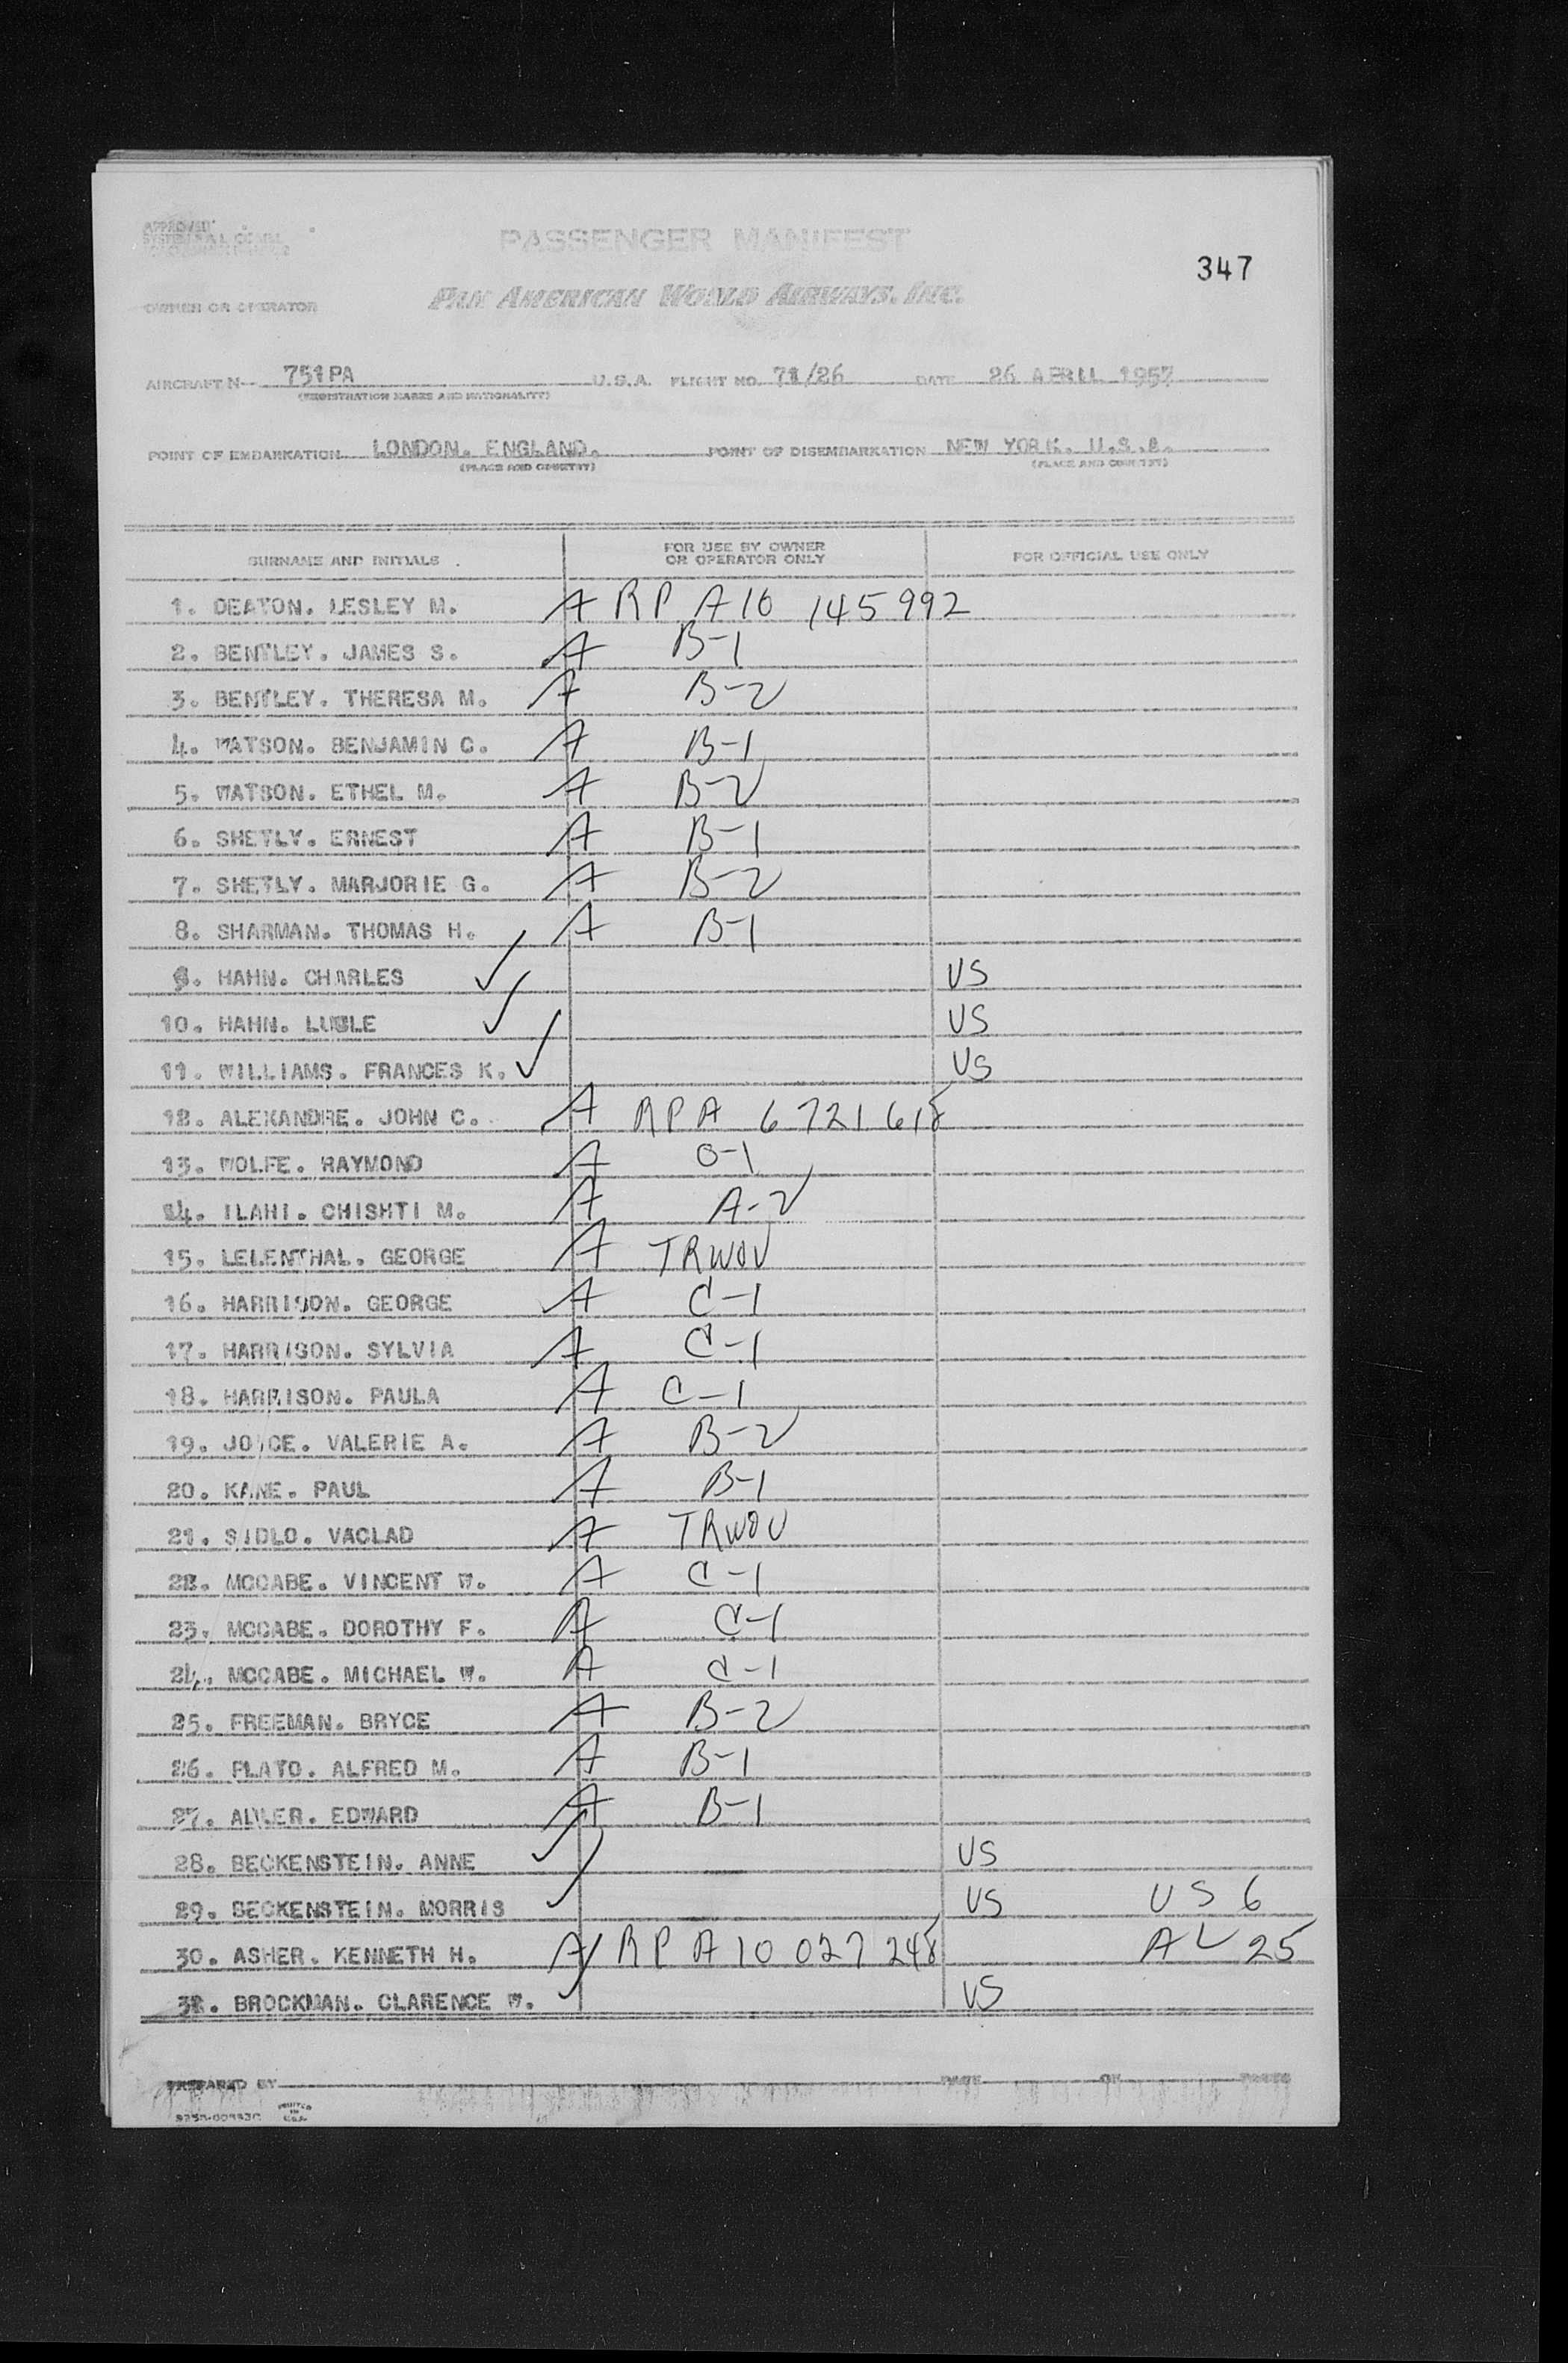 APPROVED
PASSENGER MANIFEST
347
PAN AMERICAN WORLD AIRWAYS, INC.
OWNER OR OPERATOR
AIRCRAFT N- 751PA U.S.A. FLIGHT NO. 71/26 DATE 26 APRIL 1957
(REGISTRATION MARKS AND NATIONALITY)
POINT OF EMBARKATION LONDON. ENGLAND. POINT OF DISEMBARKATION NEW YORK. U.S.A.
(PLACE AND COUNTRY) (PLACE AND COUNTRY)
SURNAME AND INITIALS FOR USE BY OWNER OR OPERATOR ONLY FOR OFFICIAL USE ONLY
1. DEATON. LESLEY M. A RP A10 145992
2. BENTLEY. JAMES S. A B-1
3. BENTLEY. THERESA M. A B-2
4. WATSON. BENJAMIN C. A B-1
5. WATSON. ETHEL M. A B-2
6. SHETLY. ERNEST A B-1
7. SHETLY. MARJORIE G. A B-2
8. SHARMAN. THOMAS H. A B-1
9. HAHN. CHARLES ✓ US
10. HAHN. ✓ US
11. WILLIAMS. FRANCES K. ✓ US
12. ALEXANDRE. JOHN C. A RPA 6 721 618
13. WOLFE. RAYMOND A O-1
14. ILAHI. CHISHTI M. A A-2
15. LELENTHAL. GEORGE A TRWOV
16. HARRISON. GEORGE A C-1
17. HARRISON. SYLVIA A C-1
18. HARRISON. PAULA A C-1
19. JOYCE. VALERIE A. A B-2
20. KANE. PAUL A B-1
21. SIDLO. VACLAD A TRWOV
22. MCCABE. VINCENT W. A C-1
23. MCCABE. DOROTHY F. A C-1
24. MCCABE. MICHAEL W. A C-1
25. FREEMAN. BRYCE A B-2
26. PLATO. ALFRED M. A B-1
27. ADLER. EDWARD A B-1
28. BECKENSTEIN. ANNE ✓ US
29. BECKENSTEIN. MORRIS ✓ US US 6
30. ASHER. KENNETH H. A RP A10 027 248 AL 25
31. BROCKMAN. CLARENCE W. ✓ US
PREPARED BY PAGE OF PAGES
PRINTED IN U.S.A.